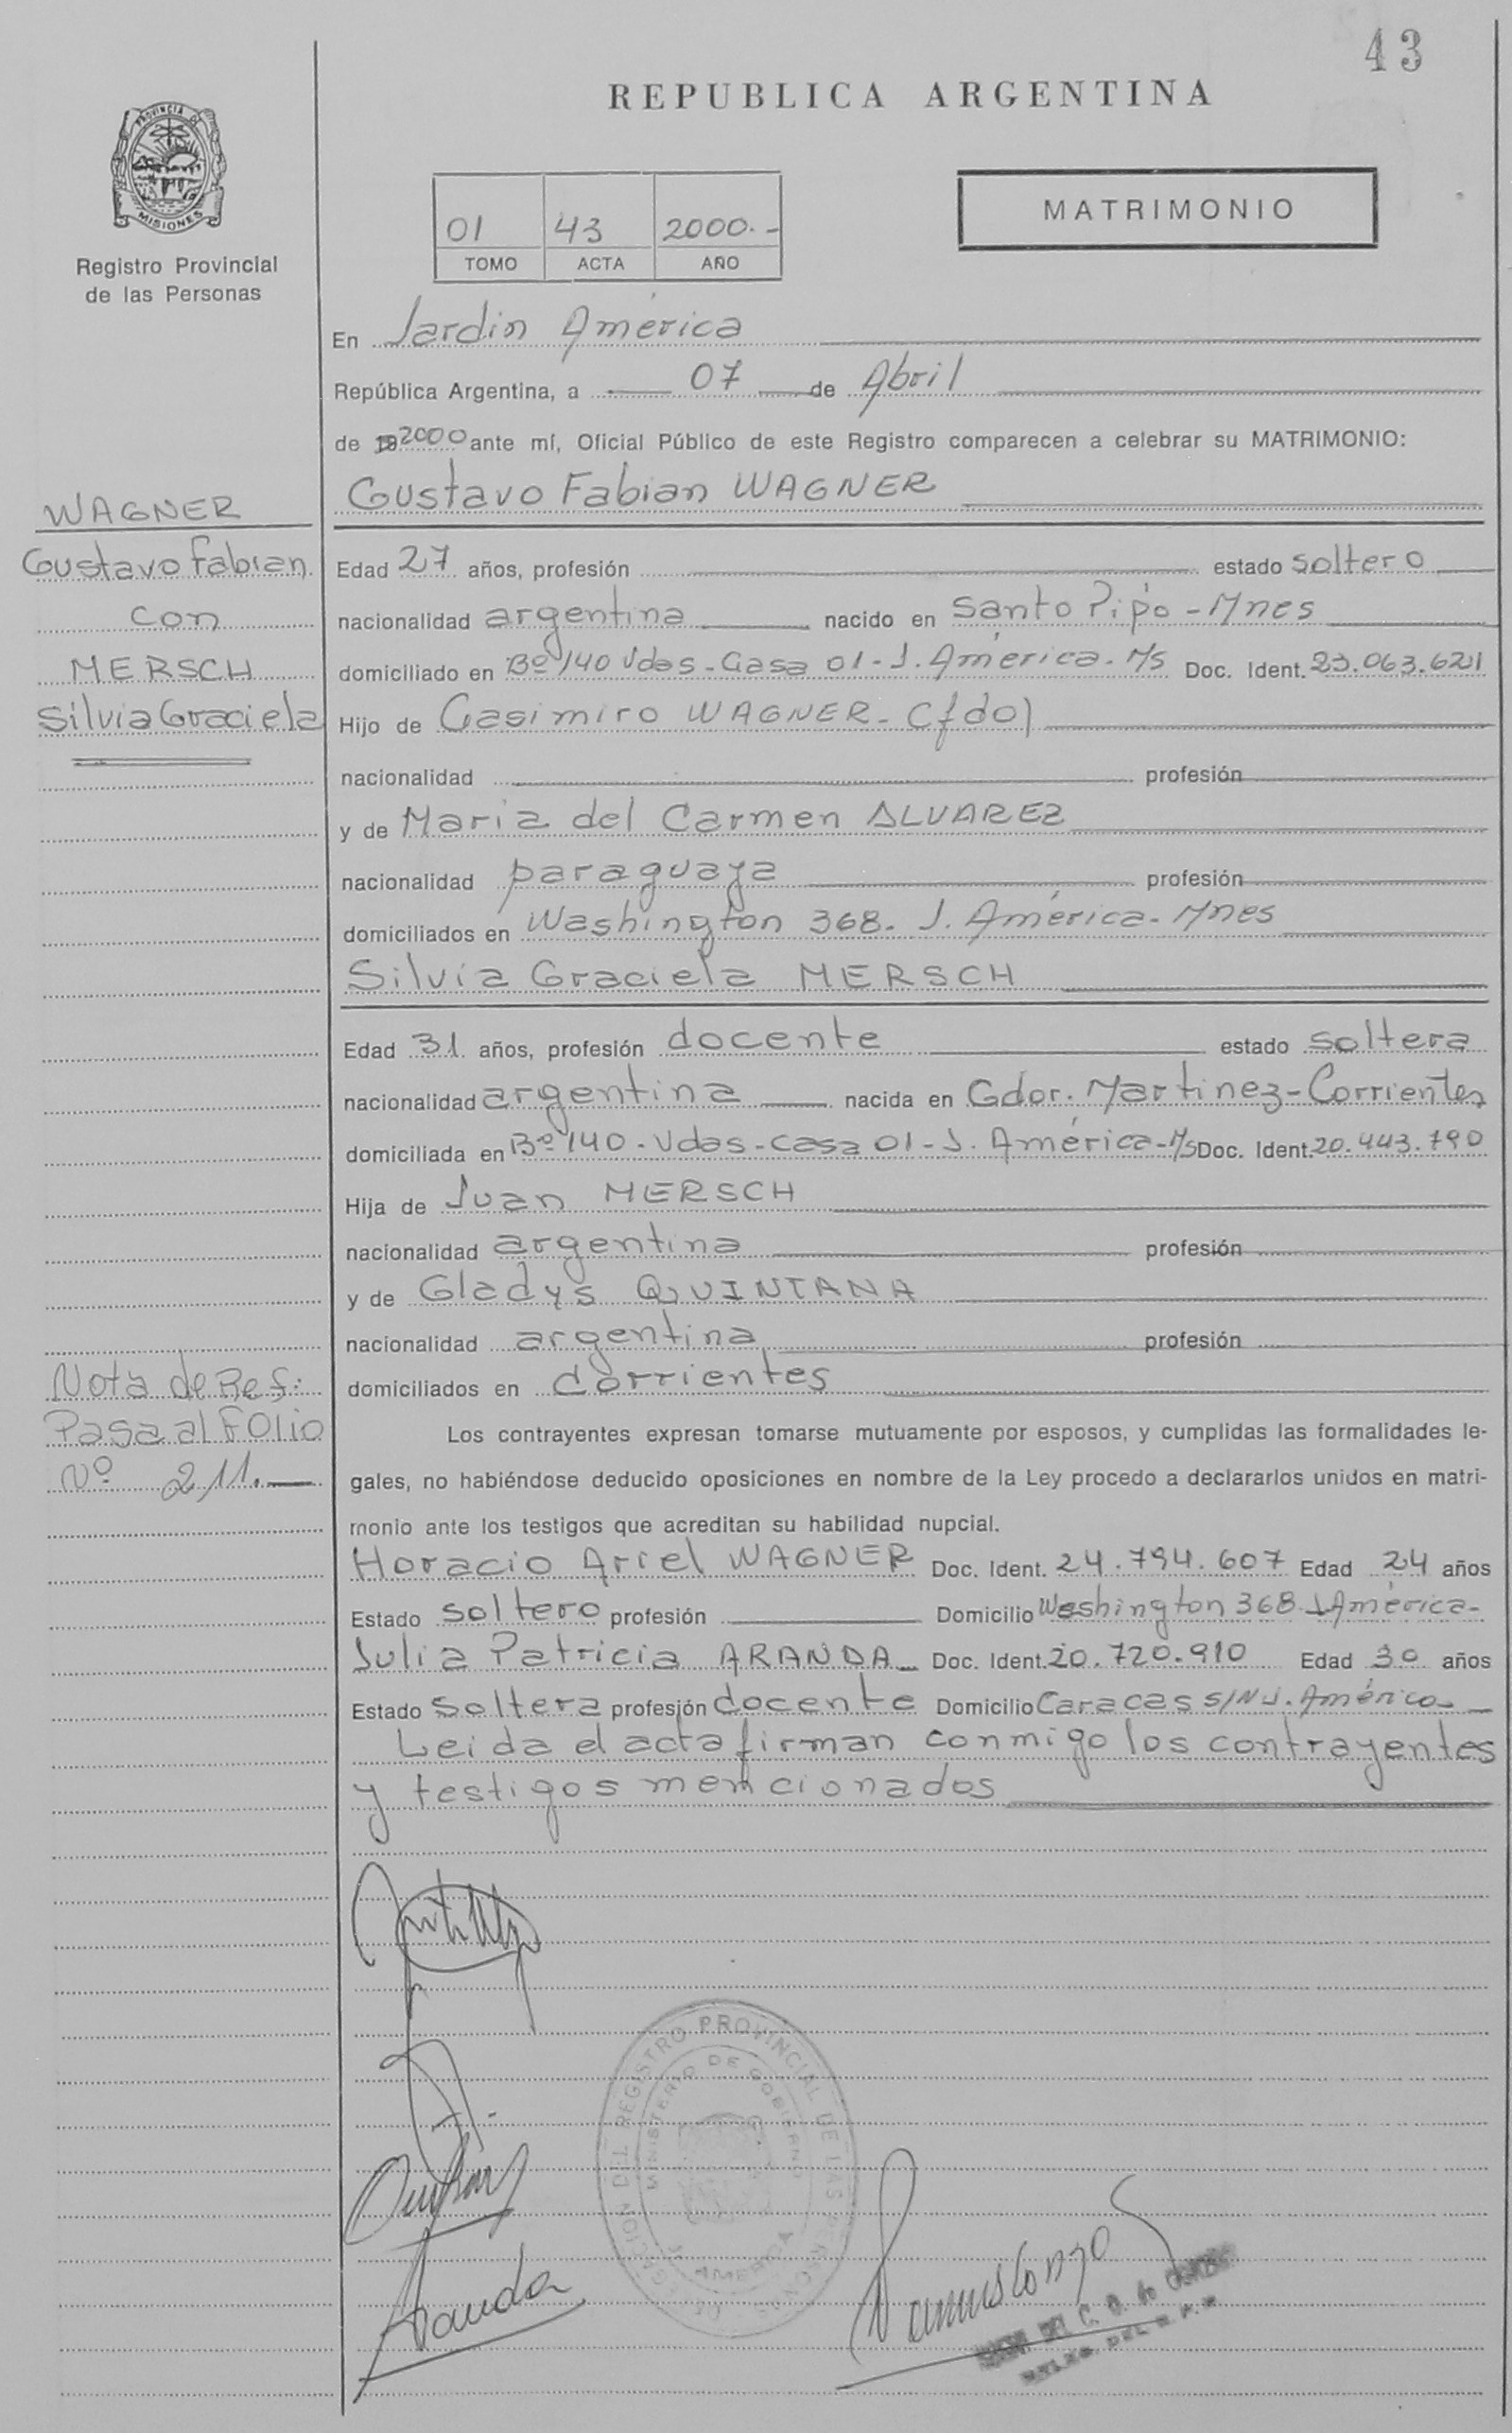 43
REPUBLICA ARGENTINA
PROVINCIA DE
MISIONES
Registro Provincial
de las Personas
01 43 2000.-
TOMO ACTA AÑO
MATRIMONIO
En Jardin América
República Argentina, a 07 de Abril
de 19 2000 ante mí, Oficial Público de este Registro comparecen a celebrar su MATRIMONIO:
Gustavo Fabian WAGNER
WAGNER
Gustavo Fabian
con
MERSCH
Silvia Graciela
Edad 27 años, profesión estado soltero
nacionalidad argentina nacido en Santo Pipó - Mnes
domiciliado en Bº 140 Vdas - Casa 01 - J. América - M/S Doc. Ident. 23.063.621
Hijo de Casimiro WAGNER - (fdo)
nacionalidad profesión
y de Maria del Carmen ALVAREZ
nacionalidad paraguaya profesión
domiciliados en Washington 368. J. América - Mnes
Silvia Graciela MERSCH
Edad 31 años, profesión docente estado soltera
nacionalidad argentina nacida en Gdor. Martinez - Corrientes
domiciliada en Bº 140 - Vdas - casa 01 - J. América - M/S Doc. Ident. 20.443.790
Hija de Juan MERSCH
nacionalidad argentina profesión
y de Gladys QUINTANA
nacionalidad argentina profesión
domiciliados en Corrientes
Nota de Ref:
Pasa al FOlio
Nº 211.—
Los contrayentes expresan tomarse mutuamente por esposos, y cumplidas las formalidades le-
gales, no habiéndose deducido oposiciones en nombre de la Ley procedo a declararlos unidos en matri-
monio ante los testigos que acreditan su habilidad nupcial.
Horacio Ariel WAGNER Doc. Ident. 24.794.607 Edad 24 años
Estado soltero profesión Domicilio Washington 368 J. América -
Julia Patricia ARANDA Doc. Ident. 20.720.910 Edad 30 años
Estado soltera profesión docente Domicilio Caracas S/N J. América
Leida el acta firman conmigo los contrayentes
y testigos mencionados
DELEGACION DEL REGISTRO PROVINCIAL DE LAS PERSONAS
MINISTERIO DE GOBIERNO
J. AMERICA
Aranda